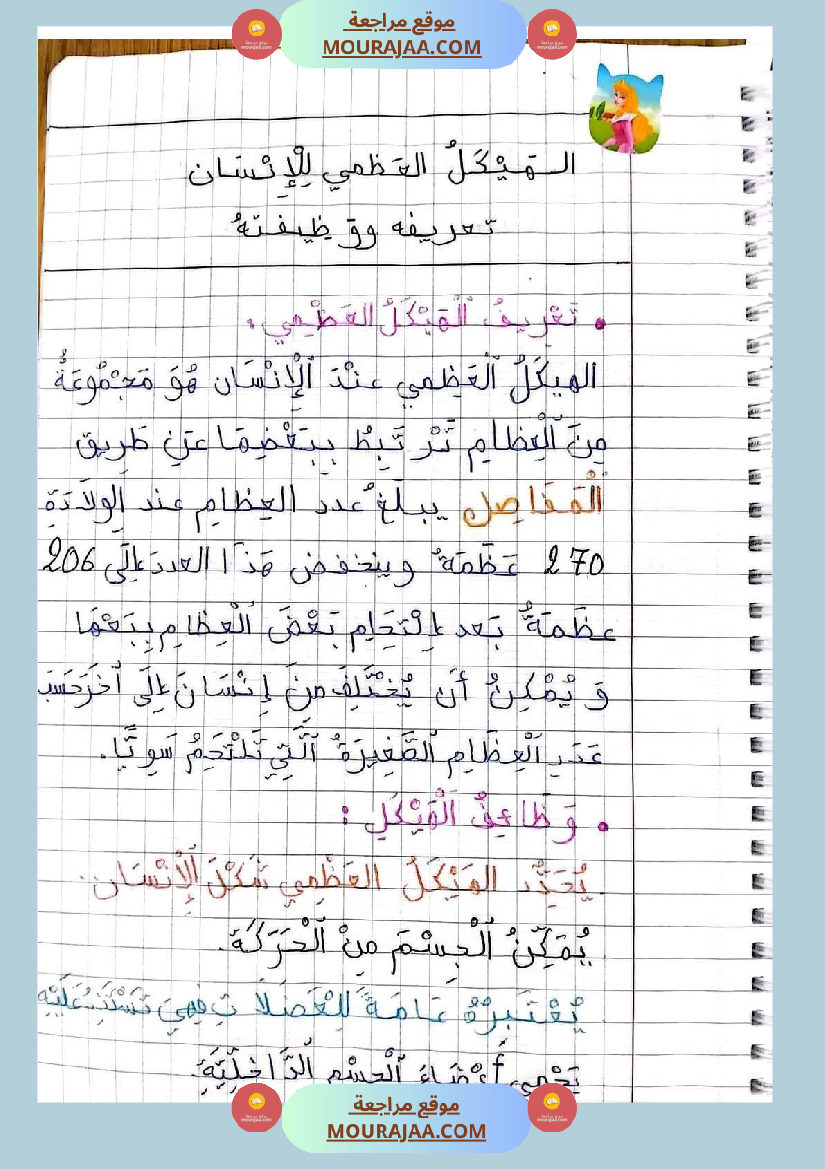 موقع مراجعة
MOURAJAA.COM
الهَيْكَلُ العَظمي لِلْإِنْسَان
تعريفه ووظيفتهُ
• تَعْرِيفُ الْهَيْكَلُ العَظْمِي :
الهيكَلُ الْعَظِمي عنْدَ الْإِنْسَان هُوَ مَجْمُوعَةُ
مِنَ الْعِظامِ تَرْتَبِطُ بِبَعْضِهَا عَنِ طَرِيق
الْمَفَاصِل يبلَغُ عدد العِظامِ عند الِولَادَةِ
270 عَظْمَةٌ وينخفض هَذَا العددَ إلَى 206
عظَمَةٌ بَعد اِلْتِحَامِ بَعْضَ الْعِظامِ بِبَعْهَا
وَ يُمْكِنُ أن يُخْتَلِفَ مِنَ إِنْسَانَ إِلَى آخَرَ حَسَبَ
عَدَدِ الْعِظَامِ الصَّغِيرَةُ الَّتِي تَلْتَحِمُ سَوِيًّا.
• وَظَائِفُ الْهَيْكَلِ :
يُحَدِّد الهَيْكَلُ العَظْمِي شَكْلَ الْإِنْسَان.
يُمَكِّنُ الْجِسْمَ مِنْ الْحَرَكَة.
يُعْتَبَرُ عَامَةً لِلْعَضَلَاتِ فِهِيَ تَسْتَنِدُ عَلَيْهِ
يَحْمِي أَعْضَاءَ الْجِسْمِ الدَّاخِلِيَّةِ.
موقع مراجعة
MOURAJAA.COM